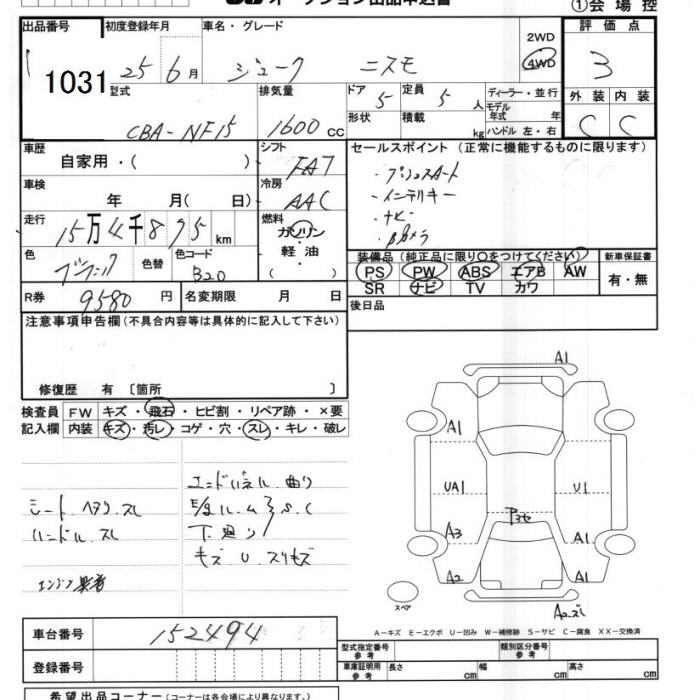 オークション出品申込書
①会場控
出品番号 初度登録年月 車名・グレード 2WD 評価点
1031 25 6月 ジューク ニスモ 4WD 3
型式 排気量 ドア 5 定員 5人 ディーラー・並行 外装 内装
CBA-NF15 1600cc 形状 積載 kg モデル年式 年 C C
ハンドル 左・右
車歴 自家用・( ) シフト FAT セールスポイント(正常に機能するものに限ります)
・プッシュスタート
車検 年 月( 日) 冷房 AAC ・インテリキー
・ナビ
走行 15万4千875km 燃料 ガソリン ・Bカメラ
軽油
( )
色 ブラック 色替 色コード B20
装備品(純正品に限り○をつけてください) 新車保証書
PS PW ABS エアB AW 有・無
SR ナビ TV カワ
R券 9580円 名変期限 月 日 後日品
注意事項申告欄(不具合内容等は具体的に記入して下さい)
修復歴 有 〔箇所 〕
検査員 FW キズ・飛石・ヒビ割・リペア跡・×要
記入欄 内装 キズ・汚レ・コゲ・穴・スレ・キレ・破レ
エンドパネル 曲り
シート ヘタリ スレ
S.C
ハンドル スレ 下廻り
キズ U スリキズ
エンジン
A1
A1
UA1 U1
A3 A1
A2 A1
スペア
A-キズ E-エクボ U-凹み W-補修跡 S-サビ C-腐食 XX-交換済
車台番号 152494
登録番号
型式指定番号 参考 類別区分番号 参考
車庫証明用 参考 長さ cm 幅 cm 高さ cm
希望出品コーナー(コーナーは各会場により異なります。)